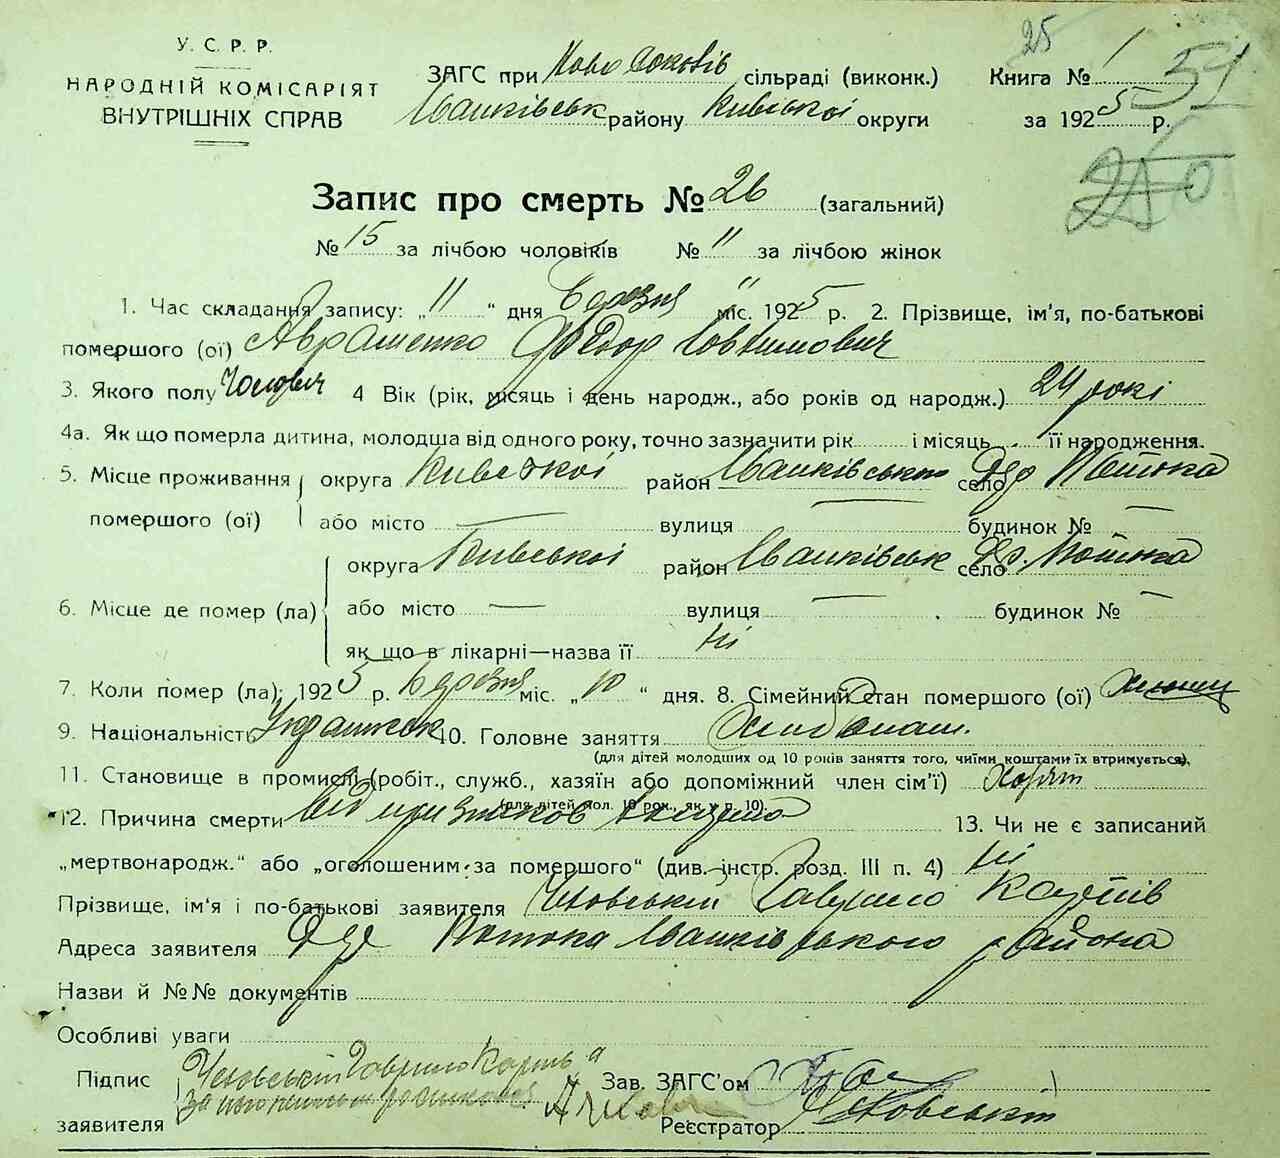 У. С. Р. Р.
НАРОДНІЙ КОМІСАРІЯТ
ВНУТРІШНІХ СПРАВ
ЗАГС при Ново сільраді (виконк.)
Іванківськ району Київської округи
25
Книга № 1
за 1925 р.
51
Запис про смерть № 26 (загальний)
№ 15 за лічбою чоловіків № 11 за лічбою жінок
1. Час складання запису: „11“ дня березня міс. 1925 р. 2. Прізвище, ім'я, по-батькові
помершого (ої) Авраменко Федор Іовхимович
3. Якого полу Чоловіч 4 Вік (рік, місяць і день народж., або років од народж.) 24 рокі
4а. Як що померла дитина, молодша від одного року, точно зазначити рік і місяць її народження.
5. Місце проживання округа Київської район Іванківського село Дер Потока
помершого (ої) або місто — вулиця — будинок № —
округа Київської район Іванківськ село Дер. Потока
6. Місце де помер (ла) або місто — вулиця — будинок № —
як що в лікарні—назва її Ні
7. Коли помер (ла): 1925 р. березня міс. „10“ дня. 8. Сімейний стан помершого (ої)
9. Національність Українец 10. Головне заняття Хлибопаш.
(для дітей молодших од 10 років заняття того, чиїми коштами їх втримується).
11. Становище в промислі (робіт., служб., хазяїн або допоміжний член сім'ї)
(для дітей мол. 10 рок., як у п. 10).
12. Причина смерти Від признаков 13. Чи не є записаний
„мертвонародж.“ або „оголошеним за помершого“ (див. інстр. розд. III п. 4) Ні
Прізвище, ім'я і по-батькові заявителя Чеховський Гаврило
Адреса заявителя Дер Потока Іванківського района
Назви й №№ документів
Особливі уваги
Підпис Чеховський Гаврило
заявителя
Зав. ЗАГС'ом
Реєстратор